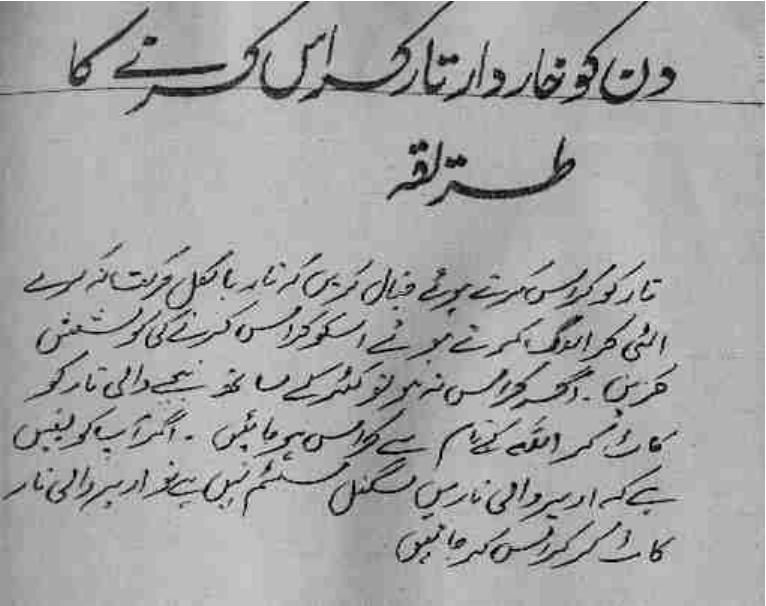 دن کو خاردار تار کراس کرنے کا
طریقہ
تار کو کراس کرتے ہوئے خیال کریں کہ تار بالکل حرکت نہ کرے
الٹی کرالنگ کرتے ہوئے اسکو کراس کرنے کی کوشش
کریں ۔ اگر کراس نہ ہو تو کٹر کے ساتھ نیچے والی تار کو
کاٹ کر اللہ کے نام سے کراس ہو جائیں ۔ اگر آپ کو یقین
ہے کہ اوپر والی تار میں سگنل سسٹم نہیں ہے تو اوپر والی تار
کاٹ کر کراس کر جائیں